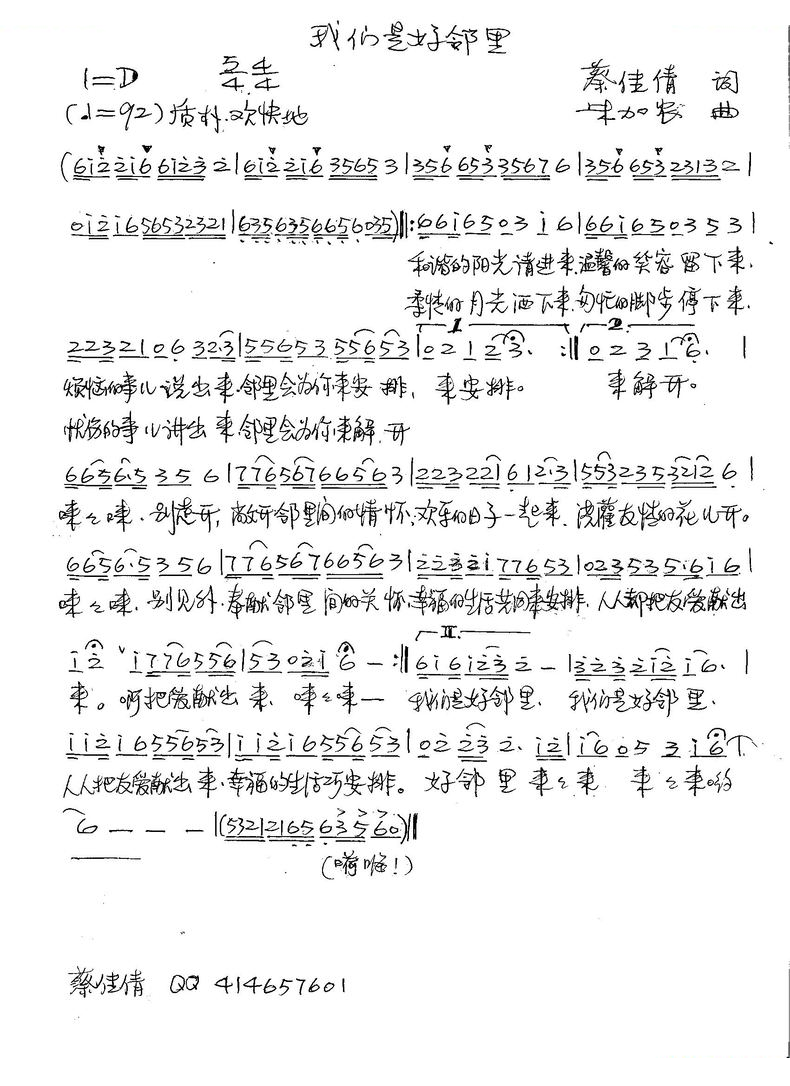 我们是好邻里
1=D 5/4 4/4 蔡佳倩 词
(♩=92) 质朴.欢快地 加农 曲
(6i2̇2̇i6 6i2̇3̇2̇|6i2̇2̇i6 35653|3566533567 6|35665323132|
0i2̇i6565532321|6356356656035)‖:66i6503i6|66i6503 53|
和谐的阳光请进来,温馨的笑容留下来.
柔情的月光洒下来.匆忙的脚步停下来.
22321063 2·3|556535 5653|021 23. :‖023 16. |
烦恼的事儿说出来.邻里会为你来安排, 来安排。 来解开。
忧伤的事儿讲出来.邻里会为你来解开
6656·535 6|77656766563|2232216 12·3|55323532126|
来来.别走开,敞开邻里间的情怀.欢乐的日子一起来.浇灌友情的花儿开。
6656·5356|77656766563|
来.别见外.奉献邻里间的关怀.幸福的生活共同来安排.人人都把友爱献出
i2̇ i776556|5302̇i6 —:‖6i6i2̇3̇2̇ —|3̇2̇3̇2̇i2̇i6.|
来。啊把爱献出来 我们是好邻里. 我们是好邻里.
ii2̇i6555653|ii2̇i6555653|02̇2̇3̇2̇. i2̇|i6053i6
人人把友爱献出来.幸福的生活巧安排。好邻里来
6 — — — |(5321216563560)‖
(嗬嗨!)
蔡佳倩 QQ 414657601